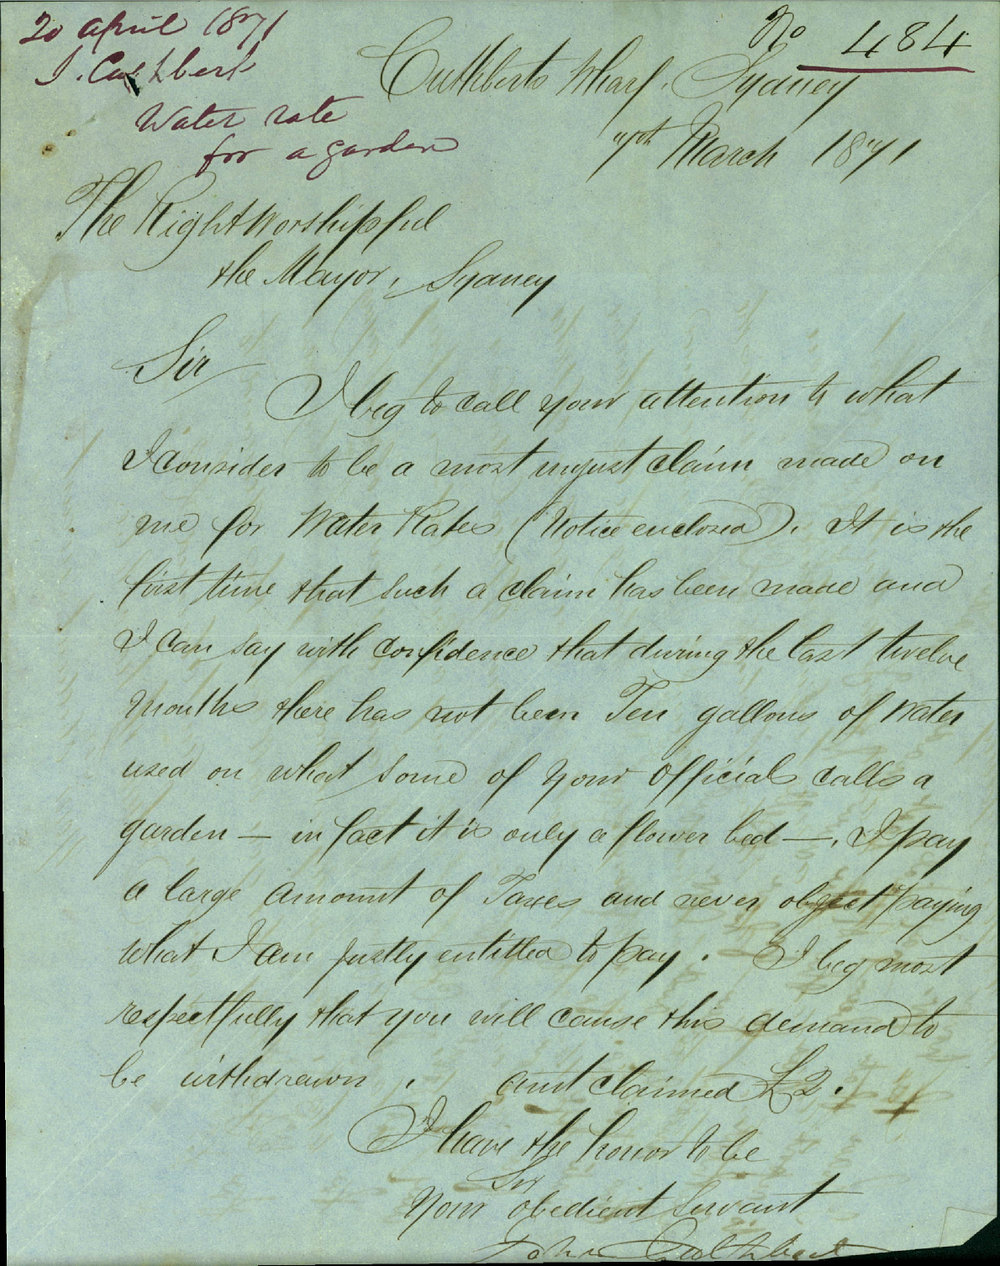 20 April 1871
J. Cuthbert
Water rate
for a garden
No 484
Cuthberts Wharf. Sydney
7th March 1871
The Right Worshipful
the Mayor, Sydney
Sir
I beg to call your attention to what
I consider to be a most unjust claim made on
me for Water Rates (Notice enclosed). It is the
first time that such a claim has been made and
I can say with confidence that during the last twelve
months there has not been Ten gallons of Water
used on what some of your Officials calls a
garden — in fact it is only a flower bed —. I pay
a large amount of Taxes and never object paying
what I am justly entitled to pay. I beg most
respectfully that you will cause this demand to
be withdrawn. amt claimed £2.
I have the honor to be
Sir
Your obedient Servant
John Cuthbert